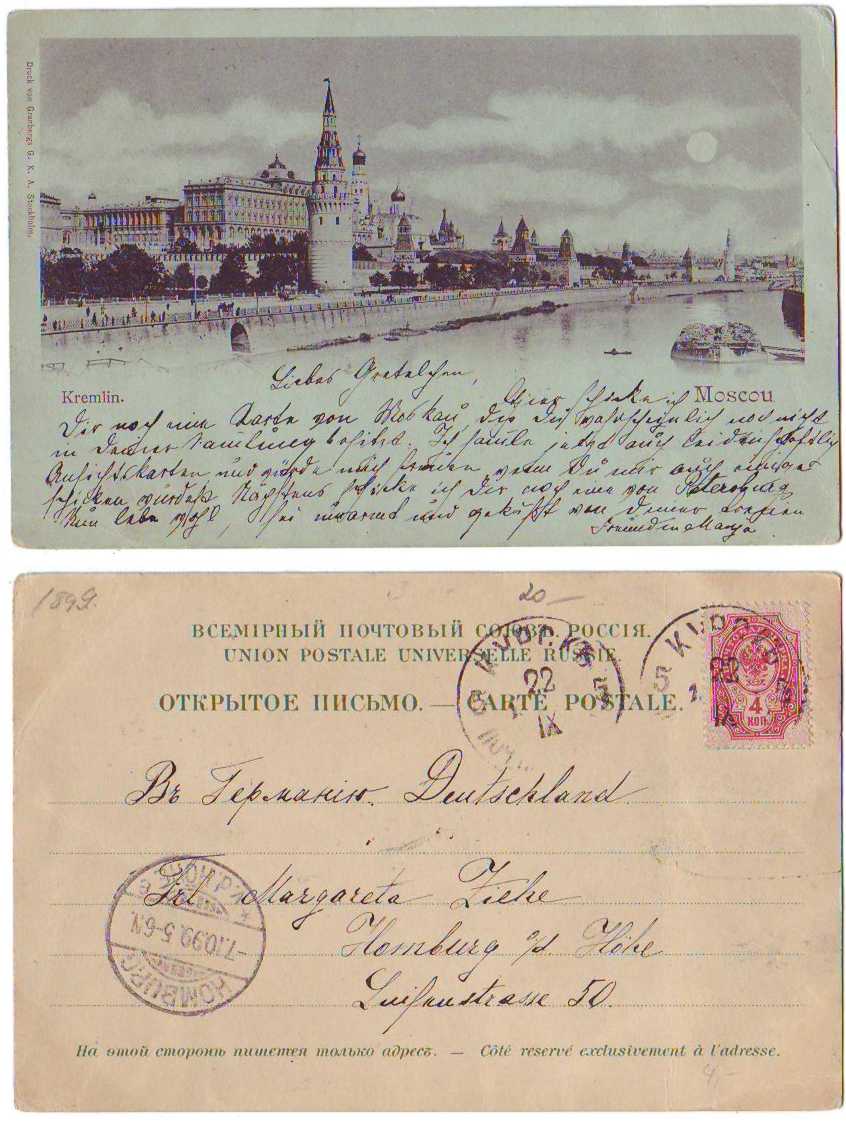 Druck von Granbergs G. K. A. Stockholm.
Kremlin.
Moscou
Liebes Gretelchen,
Hier schicke ich
Dir noch eine Karte von Moskau, die Du wahrscheinlich noch nicht
in Deiner Samlung besitzt. Ich samle jetzt auch leidenschaftlich
Ansichtskarten und würde mich freuen wenn Du mir auch einige
schicken würdest. Nächstens schicke ich Dir noch eine von Petersburg
Nun lebe wohl, sei umarmt und geküßt von Deiner treuen
Freundin Manja
1899.
20 —
ВСЕМІРНЫЙ ПОЧТОВЫЙ СОЮЗЪ. РОССІЯ.
UNION POSTALE UNIVERSELLE RUSSIE
ОТКРЫТОЕ ПИСЬМО. — CARTE POSTALE.
5 КУРСКЪ 5
22
IX
5 КУРСКЪ
22
IX
4
КОП.
Въ Германію. Deutschland
Frl Margareta Ziehe
Homburg v/d Höhe
Luisenstrasse 50.
HOMBURG
7.10.99.5-6N.
* v.d.HÖHE
На этой сторонѣ пишется только адресъ. — Côté réservé exclusivement à l'adresse.
4,-